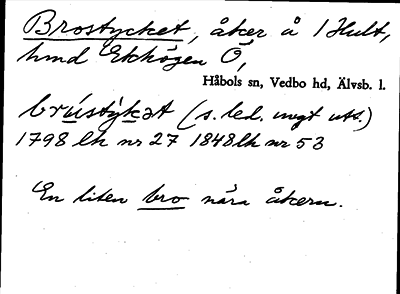 Brostycket, åker å 1 Hult,
hmd Ekhögen Ö,
Håbols sn, Vedbo hd, Älvsb. l.
brústỳkət (s. led. mygt utt.)
1798 lh nr 27 1848 lh nr 53
En liten bro nära åkern.